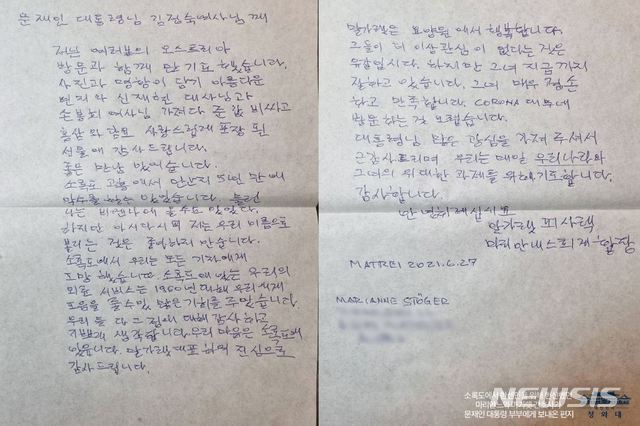 문재인 대통령님 김정숙여사님 께
저는 여러분의 오스트리아
방문과 함께 만 기뻐 했습니다.
사진과 명함이 담기 아름다운
편지와 신재현 대사님과
가져다 준 값 비싸고
홍삼과 담요 사랑스럽게 포장 된
선물에 감사 드립니다.
좋은 만남 있었습니다.
소록도 고흥에서 만난지 5년 만에
악수를 할 수 있었습니다.
나는 비엔나에 올 수 없었다.
하지만 아시다시피 저는 우리 이름으로
불리는 것은 좋아하지 않습니다.
소록도에서 우리는 모든 기자에게
도망 했습니다. 소록도에 있는 우리의
의료 서비스는 1960년대에 우리에게
도움을 줄 수 있는 많은 기회를 주었습니다.
우리 둘 다 그 점에 대해 감사하고
기쁘게 생각합니다. 우리 마음은 소록도에
있습니다. 말가렛 대표하여 진심으로
감사드립니다.
말가렛은 요양원에서 행복합니다.
그들이 더 이상 관심이 없다는 것은
유감입니다. 하지만 그녀 지금까지
잘하고 있습니다. 그녀 매우 겸손
하고 만족합니다. CORONA 때문에
방문하는 걸 못했습니다.
대통령님 많은 관심을 가져 주셔서
감사드리며 우리는 매일 우리나라와
그녀의 위대한 과제를 위해 기도합니다.
감사합니다.
안녕히 계십시오
말가렛 피사렉
마리안네 스퇴게 할장
MATREI 2021.6.27
MARIANNE STÖGER
소록도에서
마리안느와 마가렛 간호사가
문재인 대통령 부부에게 보내온 편지
NEWSIS
청와대